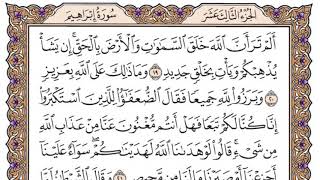 الجزء الثالث عشر
سورة إبراهيم
ألم تر أن الله خلق السموت والأرض بالحق إن يشأ
يذهبكم ويأت بخلق جديد ١٩ وما ذلك على الله بعزيز
٢٠ وبرزوا لله جميعا فقال الضعفؤا للذين استكبروا
إنا كنا لكم تبعا فهل أنتم مغنون عنا من عذاب الله
من شيء قالوا لو هدىنا الله لهدينكم سواء علينا
أجزعنا أم صبرنا ما لنا من محيص ٢١ وقال الشيطن لما